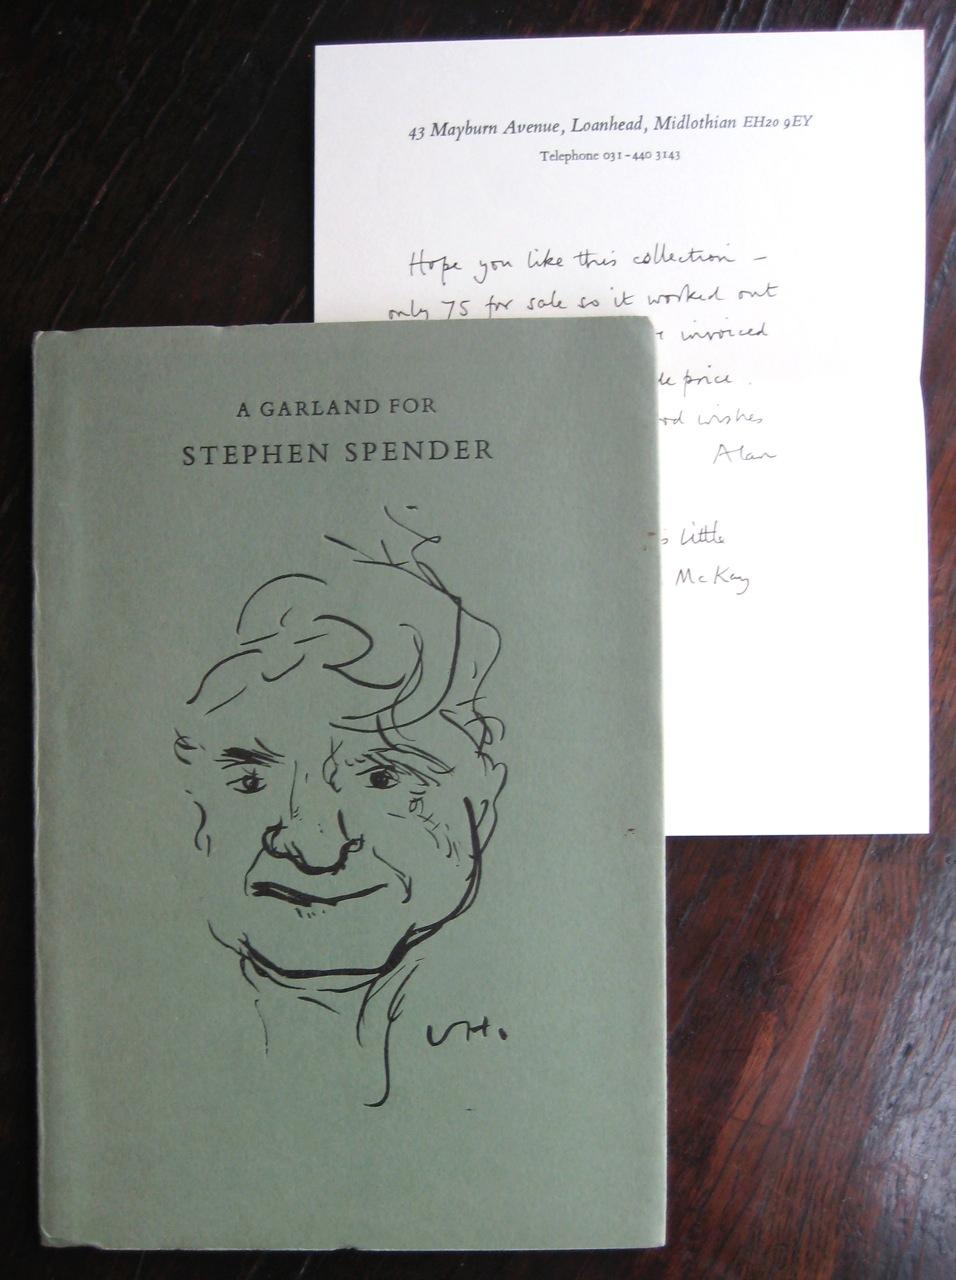 43 Mayburn Avenue, Loanhead, Midlothian EH20 9EY
Telephone 031-440 3143
Hope you like this collection –
only 75 for sale so it worked out
invoiced
price.
wishes
Alan
little
McKay
A GARLAND FOR
STEPHEN SPENDER
VH.